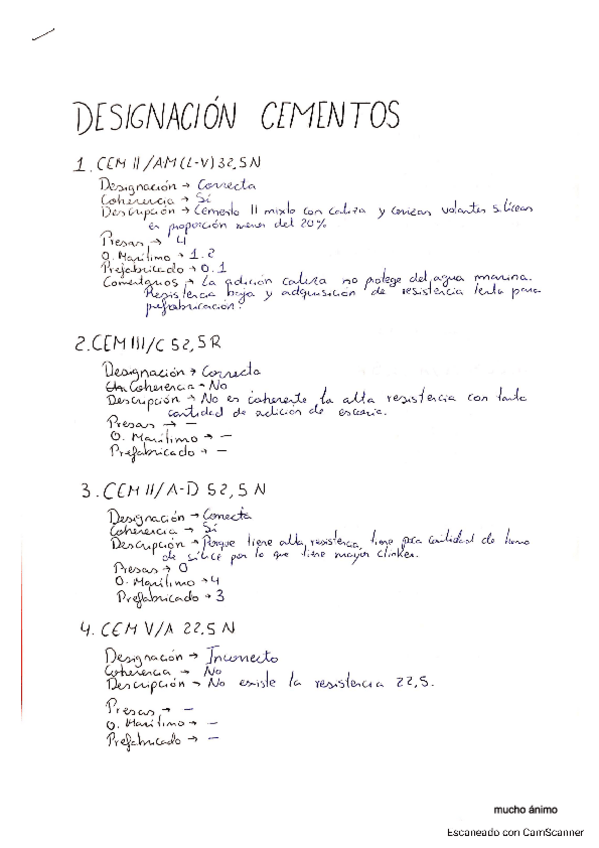 DESIGNACIÓN CEMENTOS
1. CEM II/AM(L-V) 32,5 N
Designación → Correcta
Coherencia → Sí
Descripción → Cemento II mixto con caliza y cenizas volantes silíceas
en proporción menor del 20%
Presas → 4
O. Marítimo → 1.2
Prejabricado → 0.1
Comentarios → La adición caliza no protege del agua marina.
Resistencia baja y adquisición de resistencia lenta para
prefabricación.
2. CEM III/C 52,5 R
Designación → Correcta
Coherencia → No
Descripción → No es coherente la alta resistencia con tanta
cantidad de adición de escoria.
Presas → —
O. Marítimo → —
Prefabricado → —
3. CEM II/A-D 52,5 N
Designación → Correcta
Coherencia → Sí
Descripción → Porque tiene alta resistencia, tiene poca cantidad de humo
de sílice por lo que tiene mayor clinker.
Presas → 0
O. Marítimo → 4
Prefabricado → 3
4. CEM V/A 22,5 N
Designación → Incorrecto
Coherencia → No
Descripción → No existe la resistencia 22,5.
Presas → —
O. Marítimo → —
Prefabricado → —
mucho ánimo
Escaneado con CamScanner